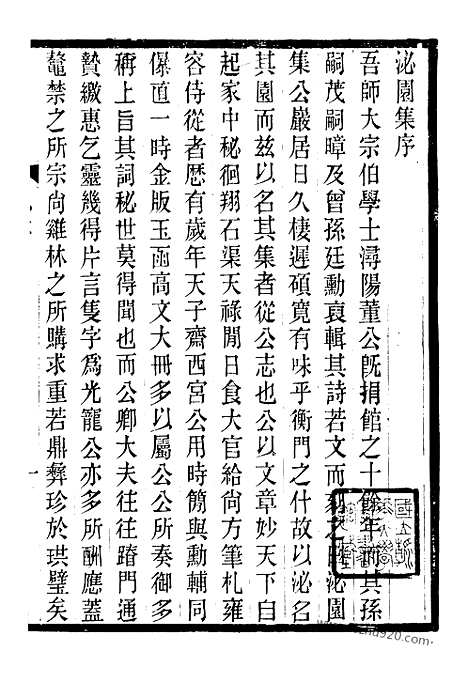 泌園集序
吾師大宗伯學士潯陽董公旣捐館之十餘年而其孫
嗣茂嗣暲及曾孫廷勳裒輯其詩若文而刻之泌園
集公嚴居日久棲遲碩寬有味乎衡門之什故以泌名
其園而兹以名其集者從公志也公以文章妙天下
起家中秘徊翔石渠天祿閒日食大官給尚方筆札雍
容侍從者歴有歲年天子齋西宮公用時簡與勳輔同
傫直一時金版玉函高文大冊多以屬公公所奏御多
稱上旨其詞秘世莫得聞也而公卿大夫往往踏門通
贄繳惠乞靈幾得片言隻字爲光寵公亦多所酬應蓋
鼇禁之所宗尚雞林之所購求重若鼎彝珍於珙璧矣
一